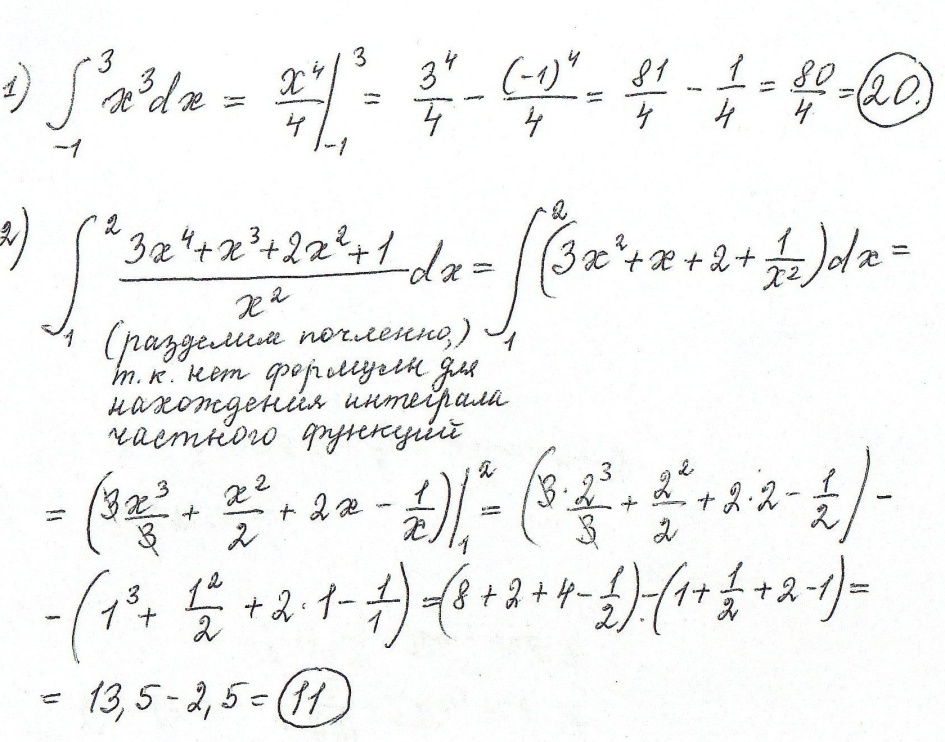 1) ∫₋₁³ x³dx = x⁴/4 |₋₁³ = 3⁴/4 − (−1)⁴/4 = 81/4 − 1/4 = 80/4 = 20.
2) ∫₁² (3x⁴+x³+2x²+1)/x² dx = ∫₁² (3x²+x+2+1/x²)dx =
(разделим почленно,)
т.к. нет формулы для
нахождения интеграла
частного функций
= (3x³/3 + x²/2 + 2x − 1/x)|₁² = (3·2³/3 + 2²/2 + 2·2 − 1/2) −
− (1³ + 1²/2 + 2·1 − 1/1) = (8+2+4−1/2)−(1+1/2+2−1) =
= 13,5−2,5 = 11